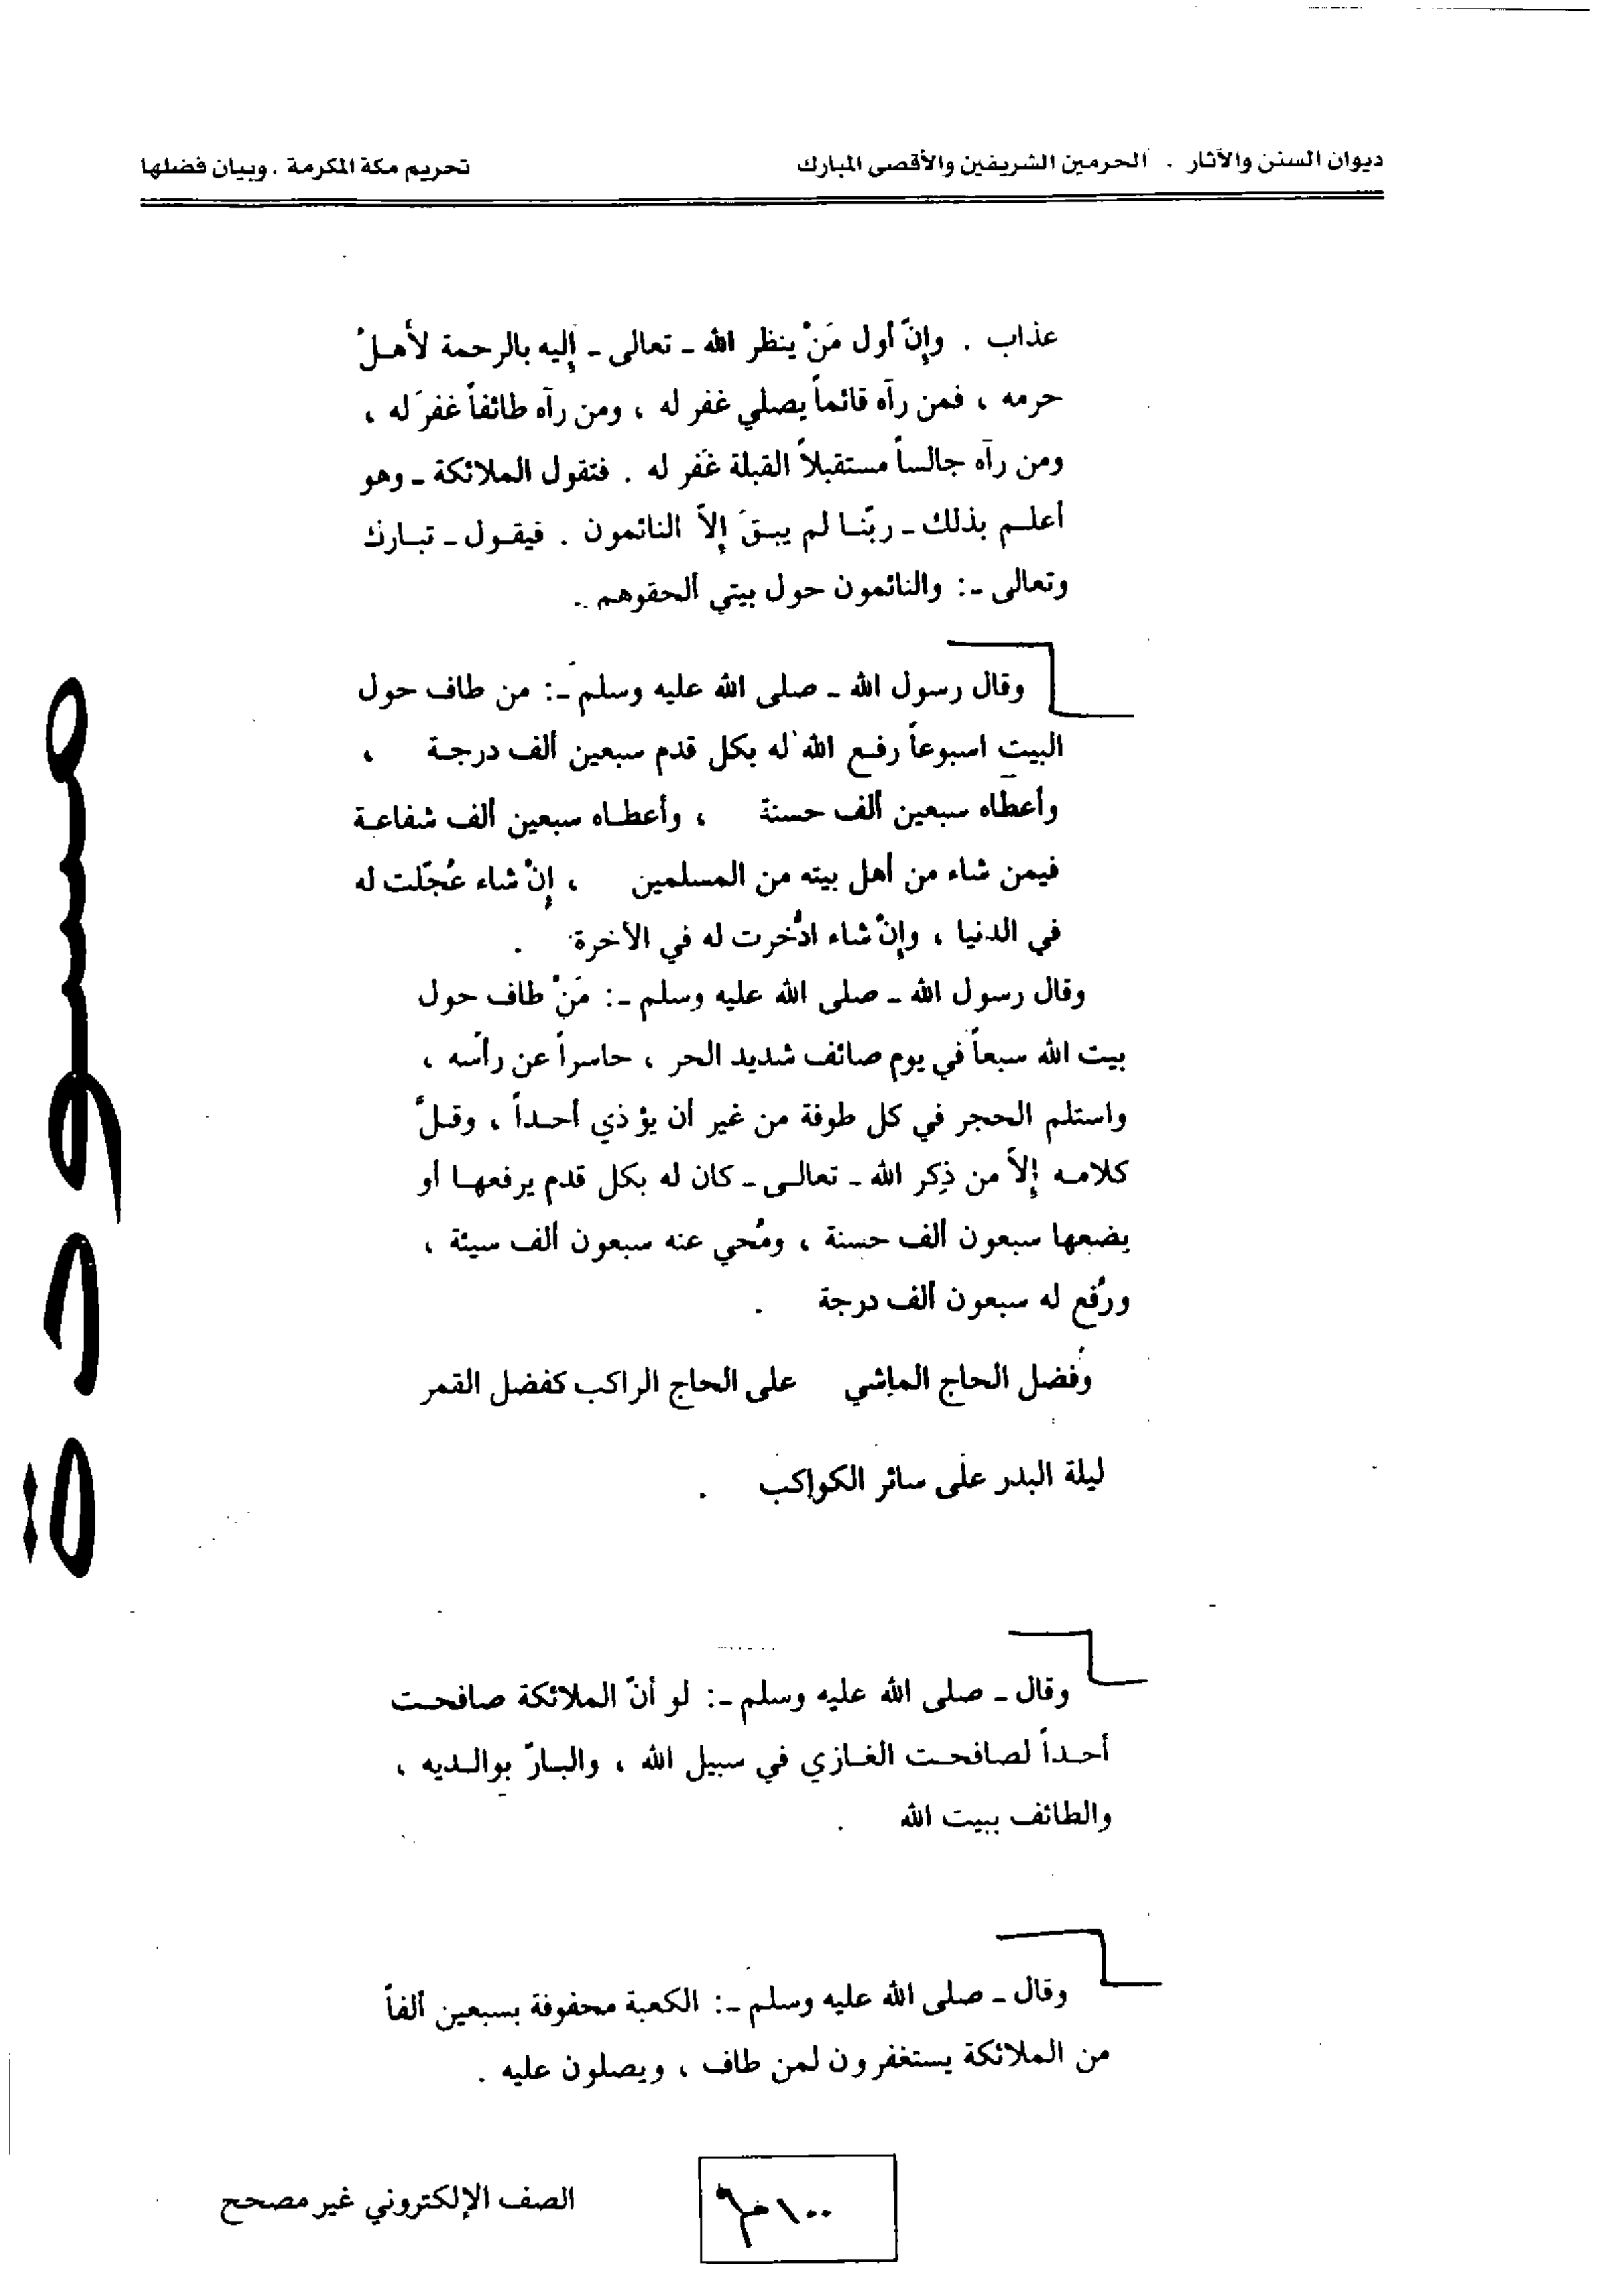 ديوان السنن والآثار . الحرمين الشريفين والأقصى المبارك
تحريم مكة المكرمة . وبيان فضلها
عذاب . وإنّ أول مَنْ ينظر الله ـ تعالى ـ إليه بالرحمة لأهـلُ
حرمه ، فمن رآه قائماً يصلي غفر له ، ومن رآه طائفاً غفرَ له ،
ومن رآه جالساً مستقبلاً القبلة غَفر له . فتقول الملائكة ـ وهو
أعلـم بذلك ـ ربّنـا لم يبـقَ إلاّ النائمون . فيقـول ـ تبـارك
وتعالى ـ: والنائمون حول بيتي ألحقوهم .
وقال رسول الله ـ صلى الله عليه وسلم ـ: من طاف حول
البيت اسبوعاً رفـع الله له بكل قدم سبعين ألف درجـة ،
وأعطاه سبعين ألف حسنة ، وأعطـاه سبعين ألف شفاعـة
فيمن شاء من أهل بيته من المسلمين ، إنْ شاء عُجّلت له
في الدنيا ، وإنْ شاء ادُّخرت له في الآخرة .
وقال رسول الله ـ صلى الله عليه وسلم ـ: مَنْ طاف حول
بيت الله سبعاً في يوم صائف شديد الحر ، حاسراً عن رأسه ،
واستلم الحجر في كل طوفة من غير أن يؤذي أحـداً ، وقـلّ
كلامـه إلاّ من ذِكر الله ـ تعالـى ـ كان له بكل قدم يرفعهـا أو
يضعها سبعون ألف حسنة ، ومُحي عنه سبعون ألف سيئة ،
ورُفع له سبعون ألف درجة .
وُفضل الحاج الماشي على الحاج الراكب كفضل القمر
ليلة البدر على سائر الكواكب .
وقال ـ صلى الله عليه وسلم ـ: لو أنّ الملائكة صافحـت
أحـداً لصافحـت الغـازي في سبيل الله ، والبـارّ بوالـديه ،
والطائف ببيت الله .
وقال ـ صلى الله عليه وسلم ـ: الكعبة محفوفة بسبعين ألفاً
من الملائكة يستغفرون لمن طاف ، ويصلون عليه .
الصف الإلكتروني غير مصحح
مسودة